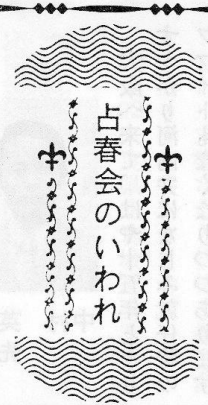 占春会のいわれ